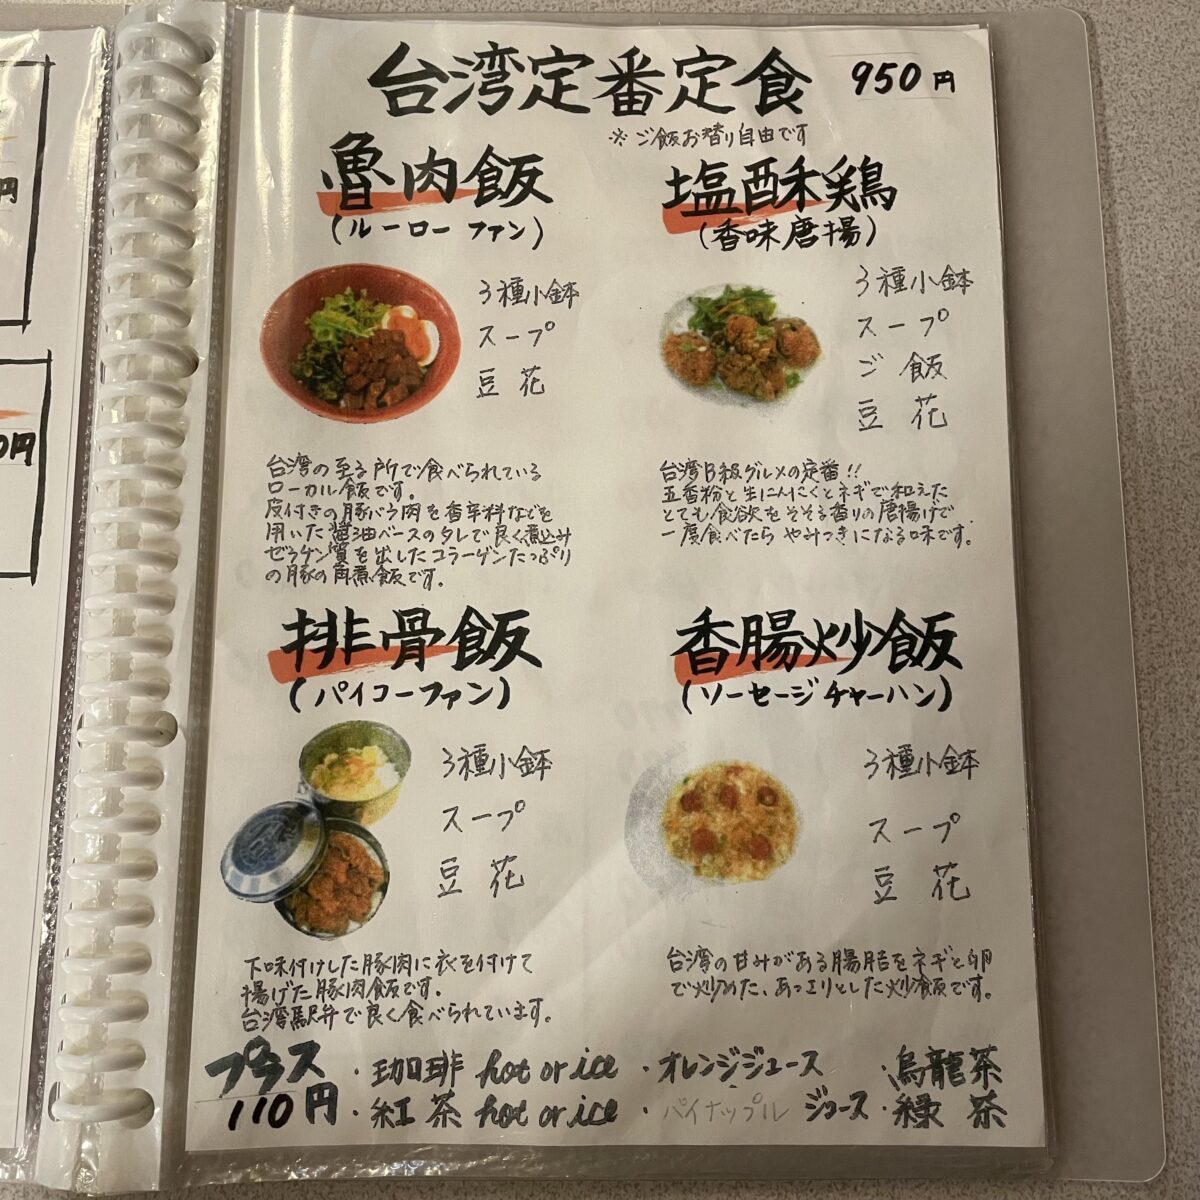 台湾定番定食 950円
※ご飯お替り自由です
魯肉飯
(ルーローファン)
3種小鉢
スープ
豆花
台湾の至る所で食べられている
ローカル飯です。
皮付きの豚バラ肉を香辛料などを
用いた醤油ベースのタレで良く煮込み
ゼラチン質を出したコラーゲンたっぷり
の豚の角煮飯です。
塩酥鶏
(香味唐揚)
3種小鉢
スープ
ご飯
豆花
台湾B級グルメの定番!!
五香粉と生にんにくとネギで和えた
とても食欲をそそる香りの唐揚げで
一度食べたらやみつきになる味です。
排骨飯
(パイコーファン)
3種小鉢
スープ
豆花
下味付けした豚肉に衣を付けて
揚げた豚肉飯です。
台湾駅弁で良く食べられています。
香腸炒飯
(ソーセージチャーハン)
3種小鉢
スープ
豆花
台湾の甘みがある腸詰をネギと卵
で炒めた、あっさりとした炒飯です。
プラス ・珈琲 hot or ice ・オレンジジュース 烏龍茶
110円 ・紅茶 hot or ice ・パイナップルジュース・緑茶
円
0円